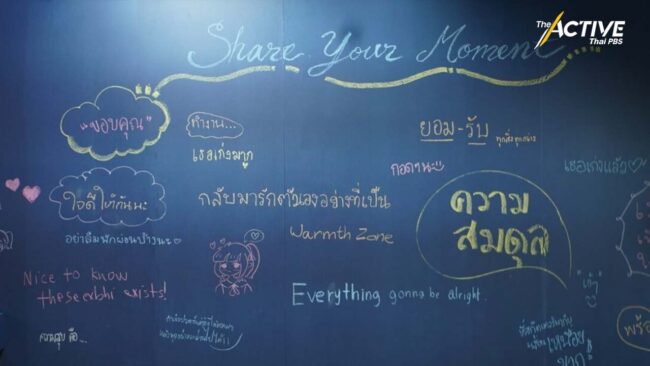 Share Your Moment
The ACTIVE
Thai PBS
"ขอบคุณ"
ทำงาน...
เธอเก่งมากๆ
ยอม-รับ
ทุกสิ่งทุกอย่าง
กอดนะ
เธอเก่งแล้ว
ใจดีให้กันนะ
กลับมารักตัวเองอย่างที่เป็น
ความ
สมดุล
อย่าลืมพักผ่อนบ้างนะ
Warmth Zone
Nice to know
exists!
Everything gonna be alright.
ความสุข คือ...
เหนื่อย
มาก